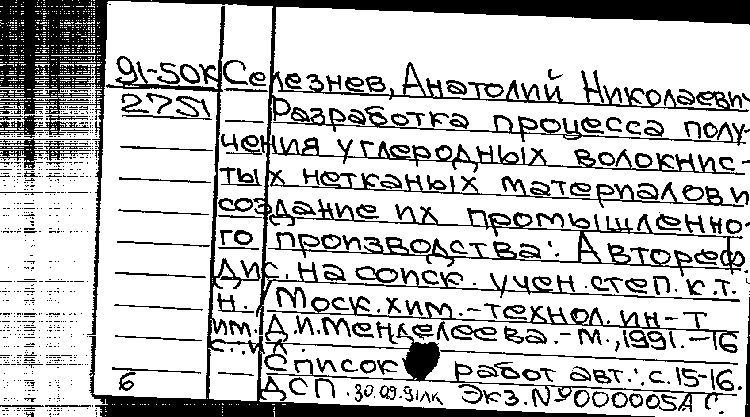 91-50К Селезнев, Анатолий Николаевич
2751 Разработка процесса полу-
чения углеродных волокнис-
тых нетканых материалов и
создание их промышленно-
го производства: Автореф.
дис. на соиск. учен. степ. к.т.
н. / Моск. хим.-технол. ин-т
им. Д.И. Менделеева. - М., 1991. - 16
с.: ил.
Список работ авт.: с. 15-16.
6 ДСП. 30.09.91лк Экз. №000005А С.